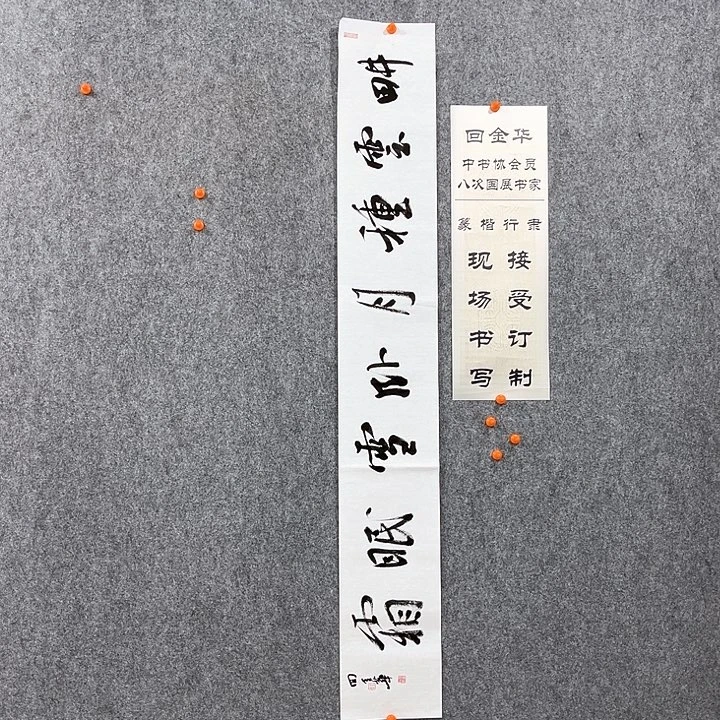 畊雲種月卧雪眠霜
回金華
回金华
中书协会员
八次国展书家
篆楷行隶
现场书写
接受订制